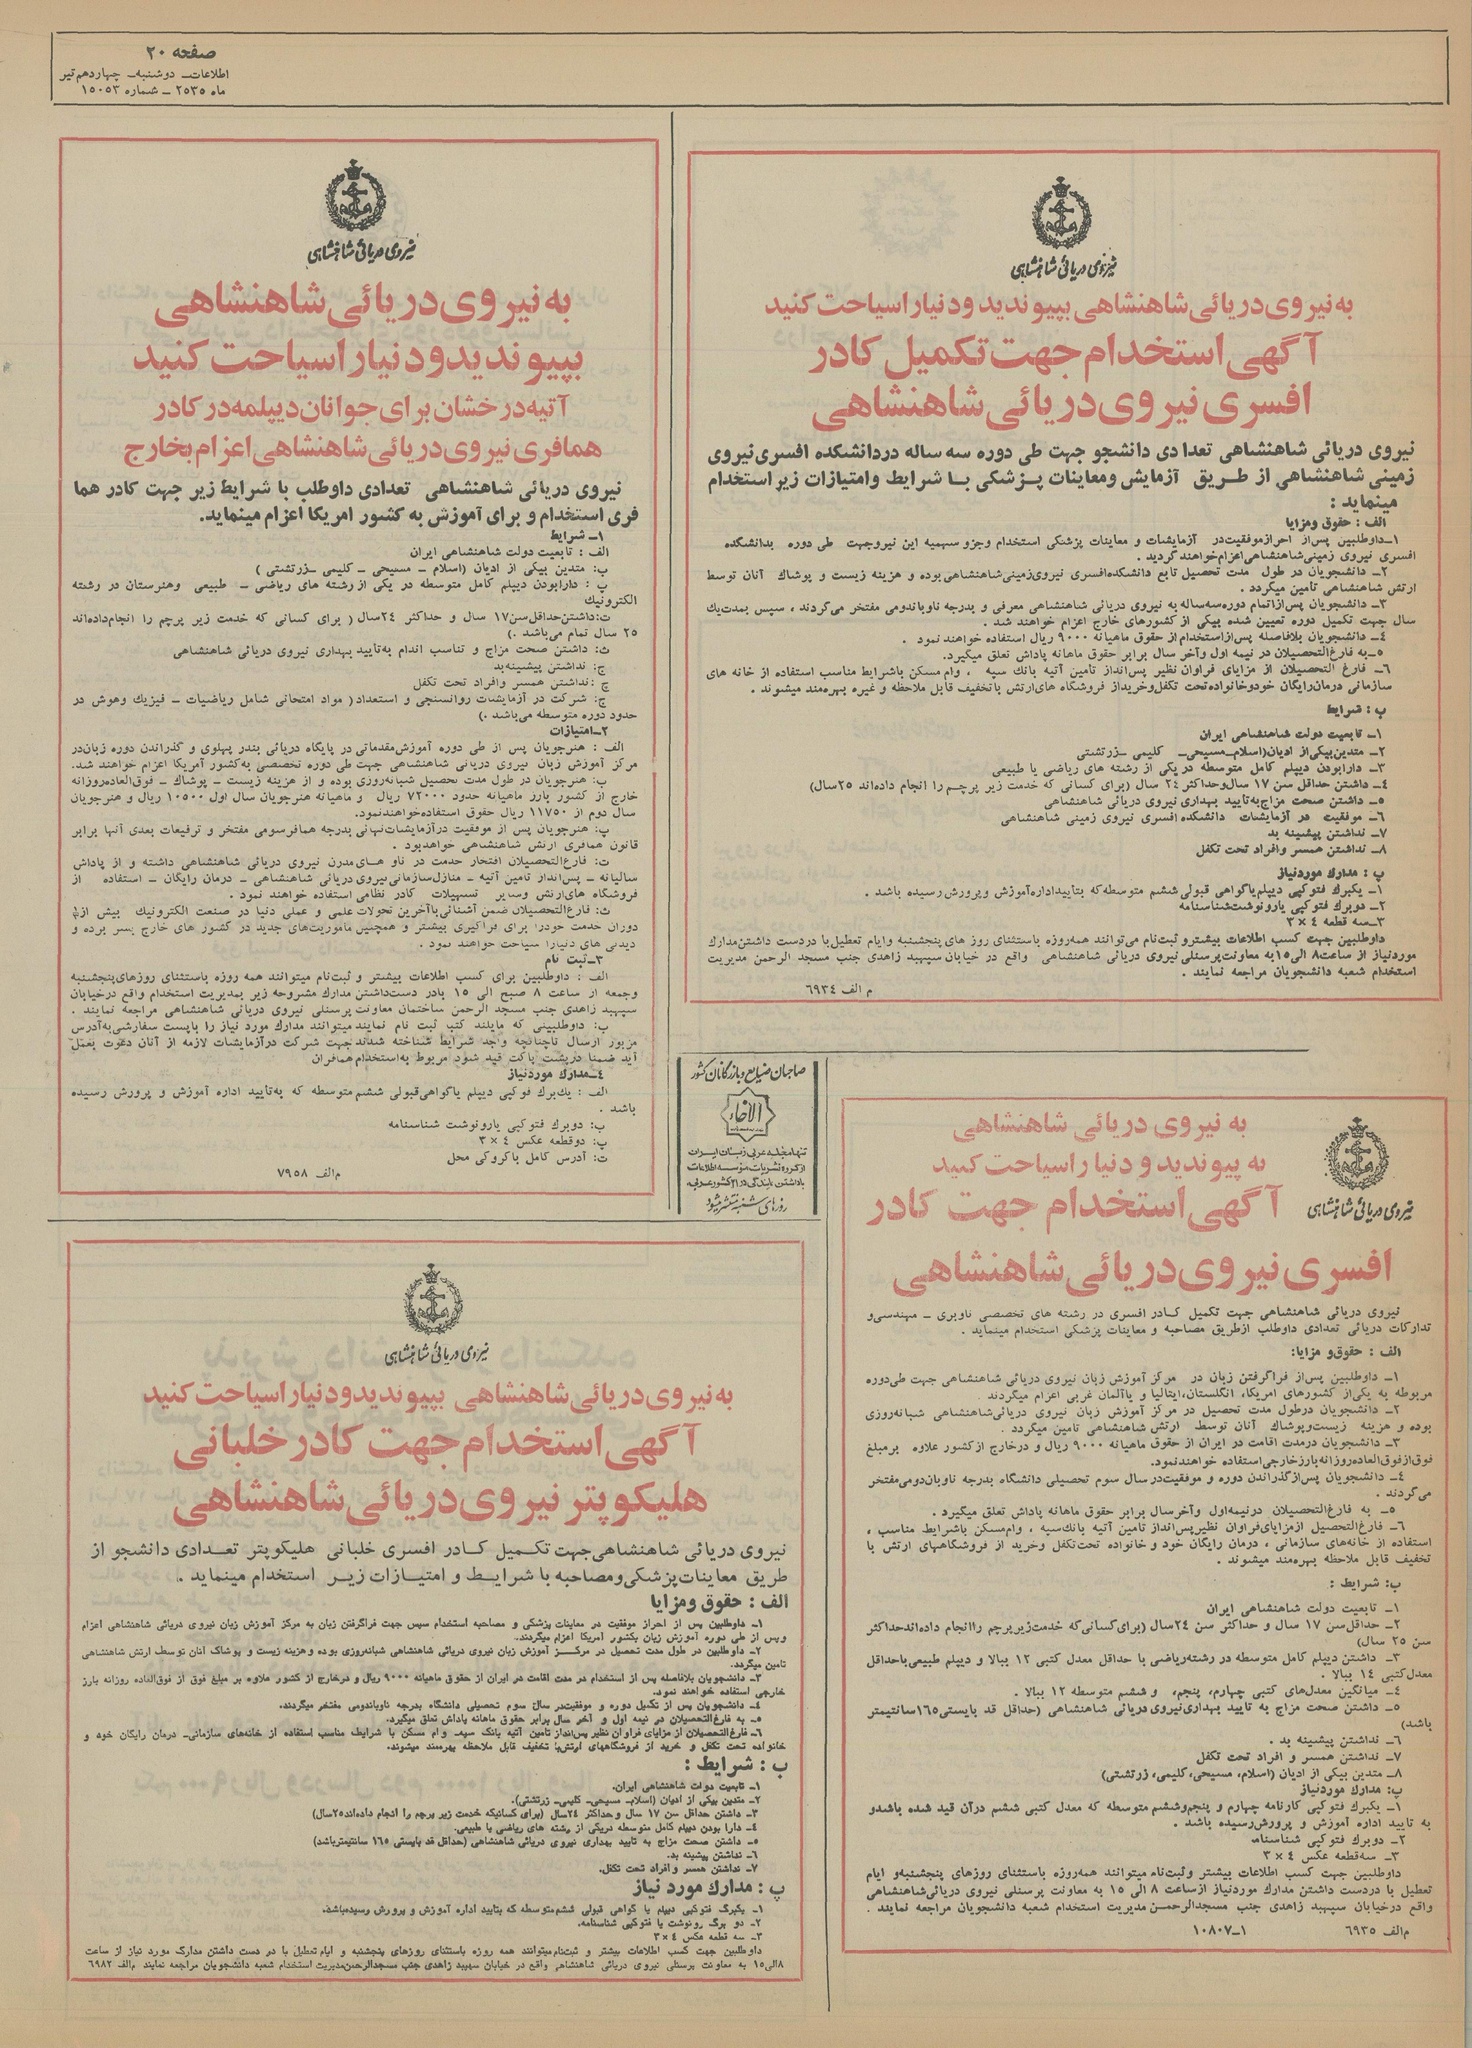 صفحه ۲۰
اطلاعات ـ دوشنبه ـ چهاردهم تیر
ماه ۲۵۳۵ ـ شماره ۱۵۰۵۳
نیروی دریائی شاهنشاهی
به نیروی دریائی شاهنشاهی بپیوندید و دنیا را سیاحت کنید
آگهی استخدام جهت تکمیل کادر
افسری نیروی دریائی شاهنشاهی
نیروی دریائی شاهنشاهی تعدادی دانشجو جهت طی دوره سه ساله در دانشکده افسری نیروی
زمینی شاهنشاهی از طریق آزمایش و معاینات پزشکی با شرایط و امتیازات زیر استخدام
مینماید :
الف : حقوق و مزایا
۱ـ داوطلبین پس از احراز موفقیت در آزمایشات و معاینات پزشکی استخدام و جزو سهمیه این نیرو جهت طی دوره بدانشکده
افسری نیروی زمینی شاهنشاهی اعزام خواهند گردید .
۲ـ دانشجویان در طول مدت تحصیل تابع دانشکده افسری نیروی زمینی شاهنشاهی بوده و هزینه زیست و پوشاك آنان توسط
ارتش شاهنشاهی تامین میگردد .
۳ـ دانشجویان پس از اتمام دوره سه ساله به نیروی دریائی شاهنشاهی معرفی و بدرجه ناوباندومی مفتخر می‌گردند ، سپس بمدت یك
سال جهت تکمیل دوره تعیین شده بیکی از کشورهای خارج اعزام خواهند شد .
۴ـ دانشجویان بلافاصله پس از استخدام از حقوق ماهیانه ۹۰۰۰ ریال استفاده خواهند نمود .
۵ـ به فارغ‌التحصیلان در نیمه اول و آخر سال برابر حقوق ماهانه پاداش تعلق میگیرد.
۶ـ فارغ التحصیلان از مزایای فراوان نظیر پس‌انداز تامین آتیه بانك سپه ، وام مسکن باشرایط مناسب استفاده از خانه های
سازمانی درمان رایگان خود و خانواده تحت تکفل و خرید از فروشگاه های ارتش با تخفیف قابل ملاحظه و غیره بهره‌مند میشوند .
ب : شرایط
۱ـ تابعیت دولت شاهنشاهی ایران
۲ـ متدین بیکی از ادیان (اسلام ـ مسیحی ـ کلیمی ـ زرتشتی
۳ـ دارا بودن دیپلم کامل متوسطه در یکی از رشته های ریاضی یا طبیعی
۴ـ داشتن حداقل سن ۱۷ سال و حداکثر ۲۴ سال (برای کسانی که خدمت زیر پرچم را انجام داده‌اند ۲۵ سال)
۵ـ داشتن صحت مزاج به تایید بهداری نیروی دریائی شاهنشاهی
۶ـ موفقیت در آزمایشات دانشکده افسری نیروی زمینی شاهنشاهی
۷ـ نداشتن پیشینه بد
۸ـ نداشتن همسر و افراد تحت تکفل
پ : مدارك مورد نیاز
۱ـ یکبرك فتوکپی دیپلم یا گواهی قبولی ششم متوسطه که بتایید اداره آموزش و پرورش رسیده باشد .
۲ـ دوبرك فتوکپی یا رونوشت شناسنامه
۳ـ سه قطعه ۴ × ۳
داوطلبین جهت کسب اطلاعات بیشتر و ثبت‌نام می‌توانند همه روزه باستثنای روز های پنجشنبه و ایام تعطیل با در دست داشتن مدارك
مورد نیاز از ساعت ۸ الی ۱۵ به معاونت پرسنلی نیروی دریائی شاهنشاهی واقع در خیابان سپهبد زاهدی جنب مسجد الرحمن مدیریت
استخدام شعبه دانشجویان مراجعه نمایند .
م الف ۶۹۳۴
نیروی دریائی شاهنشاهی
به نیروی دریائی شاهنشاهی
بپیوندید و دنیا را سیاحت کنید
آتیه درخشان برای جوانان دیپلمه در کادر
همافری نیروی دریائی شاهنشاهی اعزام بخارج
نیروی دریائی شاهنشاهی تعدادی داوطلب با شرایط زیر جهت کادر هما
فری استخدام و برای آموزش به کشور امریکا اعزام مینماید.
۱ـ شرایط
الف : تابعیت دولت شاهنشاهی ایران
ب: متدین بیکی از ادیان (اسلام ـ مسیحی ـ کلیمی ـ زرتشتی )
پ : دارا بودن دیپلم کامل متوسطه در یکی از رشته های ریاضی ـ طبیعی و هنرستان در رشته
الکترونیك
ت: داشتن حداقل سن ۱۷ سال و حداکثر ۲۴ سال ( برای کسانی که خدمت زیر پرچم را انجام داده‌اند
۲۵ سال تمام می‌باشد .)
ث: داشتن صحت مزاج و تناسب اندام به تایید بهداری نیروی دریائی شاهنشاهی
ج: نداشتن پیشینه بد
چ : نداشتن همسر و افراد تحت تکفل
ح: شرکت در آزمایشات روانسنجی و استعداد ( مواد امتحانی شامل ریاضیات ـ فیزیك و هوش در
حدود دوره متوسطه می‌باشد .)
۲ـ امتیازات
الف : هنرجویان پس از طی دوره آموزش مقدماتی در پایگاه دریائی بندر پهلوی و گذراندن دوره زبان در
مرکز آموزش زبان نیروی دریائی شاهنشاهی جهت طی دوره تخصصی به کشور آمریکا اعزام خواهند شد.
ب: هنرجویان در طول مدت تحصیل شبانه‌روزی بوده و از هزینه زیست ـ پوشاك ـ فوق‌العاده روزانه
خارج از کشور بارز ماهیانه حدود ۷۲۰۰۰ ریال و ماهیانه هنرجویان سال اول ۱۰۵۰۰ ریال و هنرجویان
سال دوم از ۱۱۷۵۰ ریال حقوق استفاده خواهند نمود.
پ: هنرجویان پس از موفقیت در آزمایشات نهائی بدرجه همافر سومی مفتخر و ترفیعات بعدی آنها برابر
قانون همافری ارتش شاهنشاهی خواهد بود .
ت: فارغ‌التحصیلان افتخار خدمت در ناو های مدرن نیروی دریائی شاهنشاهی داشته و از پاداش
سالیانه ـ پس‌انداز تامین آتیه ـ منازل سازمانی نیروی دریائی شاهنشاهی ـ درمان رایگان ـ استفاده از
فروشگاه های ارتش و سایر تسهیلات کادر نظامی استفاده خواهند نمود .
ث: فارغ‌التحصیلان ضمن آشنائی با آخرین تحولات علمی و عملی دنیا در صنعت الکترونیك بیش از
دوران خدمت خود را برای فراگیری بیشتر و همچنین ماموریت‌های جدید در کشور های خارج بسر برده و
دیدنی های دنیا را سیاحت خواهند نمود .
۳ـ ثبت نام
الف : داوطلبین برای کسب اطلاعات بیشتر و ثبت‌نام میتوانند همه روزه باستثنای روزهای پنجشنبه
و جمعه از ساعت ۸ صبح الی ۱۵ با در دست داشتن مدارك مشروحه زیر بمدیریت استخدام واقع در خیابان
سپهبد زاهدی جنب مسجد الرحمن ساختمان معاونت پرسنلی نیروی دریائی شاهنشاهی مراجعه نمایند .
ب: داوطلبینی که مایلند کتبا ثبت نام نمایند میتوانند مدارك مورد نیاز را با پست سفارشی به آدرس
مزبور ارسال تا چنانچه واجد شرایط شناخته شدند جهت شرکت در آزمایشات لازمه از آنان دعوت بعمل
آید ضمنا در پشت پاکت قید شود مربوط به استخدام همافران
۴ـ مدارك مورد نیاز
الف : یك‌برك فوکپی دیپلم یا گواهی قبولی ششم متوسطه که به تایید اداره آموزش و پرورش رسیده
باشد .
ب: دوبرك فتوکپی یا رونوشت شناسنامه
پ: دو قطعه عکس ۴ × ۳
ت: آدرس کامل با کروکی محل
م الف ۷۹۵۸
صاحبان صنایع و بازرگانان کشور
الاخاء
تنها مجله عربی زبان ایران
از گروه نشریات موسسه اطلاعات
با داشتن نمایندگی در ۲۱ کشور عربی
روزهای شنبه منتشر میشود
به نیروی دریائی شاهنشاهی
به پیوندید و دنیا را سیاحت کنید
نیروی دریائی شاهنشاهی
آگهی استخدام جهت کادر
افسری نیروی دریائی شاهنشاهی
نیروی دریائی شاهنشاهی جهت تکمیل کادر افسری در رشته های تخصصی ناوبری ـ مهندسی و
تدارکات دریائی تعدادی داوطلب از طریق مصاحبه و معاینات پزشکی استخدام مینماید .
الف : حقوق و مزایا:
۱ـ داوطلبین پس از فراگرفتن زبان در مرکز آموزش زبان نیروی دریائی شاهنشاهی جهت طی دوره
مربوطه به یکی از کشورهای امریکا، انگلستان، ایتالیا و یا آلمان غربی اعزام میگردند .
۲ـ دانشجویان در طول مدت تحصیل در مرکز آموزش زبان نیروی دریائی شاهنشاهی شبانه‌روزی
بوده و هزینه زیست و پوشاك آنان توسط ارتش شاهنشاهی تامین میگردد .
۳ـ دانشجویان در مدت اقامت در ایران از حقوق ماهیانه ۹۰۰۰ ریال و در خارج از کشور علاوه بر مبلغ
فوق از فوق‌العاده روزانه بارز خارجی استفاده خواهند نمود.
۴ـ دانشجویان پس از گذراندن دوره و موفقیت در سال سوم تحصیلی دانشگاه بدرجه ناوبان دومی مفتخر
می‌گردند .
۵ـ به فارغ‌التحصیلان در نیمه اول و آخر سال برابر حقوق ماهانه پاداش تعلق میگیرد .
۶ـ فارغ‌التحصیل از مزایای فراوان نظیر پس‌انداز تامین آتیه بانك سپه ، وام مسکن باشرایط مناسب ،
استفاده از خانه‌های سازمانی ، درمان رایگان خود و خانواده تحت تکفل و خرید از فروشگاههای ارتش با
تخفیف قابل ملاحظه بهره‌مند میشوند .
ب: شرایط :
۱ـ تابعیت دولت شاهنشاهی ایران
۲ـ حداقل سن ۱۷ سال و حداکثر سن ۲۴ سال (برای کسانی که خدمت زیر پرچم را انجام داده‌اند حداکثر
سن ۲۵ سال)
۳ـ داشتن دیپلم کامل متوسطه در رشته ریاضی با حداقل معدل کتبی ۱۲ ببالا و دیپلم طبیعی با حداقل
معدل کتبی ۱۴ ببالا .
۴ـ میانگین معدل‌های کتبی چهارم، پنجم، و ششم متوسطه ۱۲ ببالا .
۵ـ داشتن صحت مزاج به تایید بهداری نیروی دریائی شاهنشاهی (حداقل قد بایستی ۱۶۵ سانتیمتر
باشد)
۶ـ نداشتن پیشینه بد .
۷ـ نداشتن همسر و افراد تحت تکفل
۸ـ متدین بیکی از ادیان (اسلام، مسیحی، کلیمی، زرتشتی)
پ: مدارك مورد نیاز
۱ـ یکبرك فتوکپی کارنامه چهارم و پنجم و ششم متوسطه که معدل کتبی ششم در آن قید شده باشد و
به تایید اداره آموزش و پرورش رسیده باشد .
۲ـ دوبرك فتوکپی شناسنامه
۳ـ سه قطعه عکس ۴ × ۳
داوطلبین جهت کسب اطلاعات بیشتر و ثبت‌نام میتوانند همه روزه باستثنای روزهای پنجشنبه و ایام
تعطیل با در دست داشتن مدارك مورد نیاز از ساعت ۸ الی ۱۵ به معاونت پرسنلی نیروی دریائی شاهنشاهی
واقع در خیابان سپهبد زاهدی جنب مسجد الرحمن مدیریت استخدام شعبه دانشجویان مراجعه نمایند .
م الف ۶۹۳۵ ۱ـ۱۰۸۰۷
نیروی دریائی شاهنشاهی
به نیروی دریائی شاهنشاهی بپیوندید و دنیا را سیاحت کنید
آگهی استخدام جهت کادر خلبانی
هلیکوپتر نیروی دریائی شاهنشاهی
نیروی دریائی شاهنشاهی جهت تکمیل کادر افسری خلبانی هلیکوپتر تعدادی دانشجو از
طریق معاینات پزشکی و مصاحبه با شرایط و امتیازات زیر استخدام مینماید .
الف : حقوق و مزایا
۱ـ داوطلبین پس از احراز موفقیت در معاینات پزشکی و مصاحبه استخدام سپس جهت فراگرفتن زبان به مرکز آموزش زبان نیروی دریائی شاهنشاهی اعزام
و پس از طی دوره آموزش زبان بکشور آمریکا اعزام میگردند.
۲ـ داوطلبین در طول مدت تحصیل در مرکز آموزش زبان نیروی دریائی شاهنشاهی شبانه‌روزی بوده و هزینه زیست و پوشاک آنان توسط ارتش شاهنشاهی
تامین میگردد.
۳ـ دانشجویان بلافاصله پس از استخدام در مدت اقامت در ایران از حقوق ماهیانه ۹۰۰۰ ریال و در خارج از کشور علاوه بر مبلغ فوق از فوق‌العاده روزانه بارز
خارجی استفاده خواهند نمود.
۴ـ دانشجویان پس از تکمیل دوره و موفقیت در سال سوم تحصیلی دانشگاه بدرجه ناوباندومی مفتخر میگردند.
۵ـ به فارغ‌التحصیلان در نیمه اول و آخر سال برابر حقوق ماهانه پاداش تعلق میگیرد.
۶ـ فارغ‌التحصیلان از مزایای فراوان نظیر پس‌انداز تامین آتیه بانک سپه، وام مسکن با شرایط مناسب استفاده از خانه‌های سازمانی ـ درمان رایگان خود و
خانواده تحت تکفل و خرید از فروشگاههای ارتش با تخفیف قابل ملاحظه بهره‌مند میشوند.
ب : شرایط :
۱ـ تابعیت دولت شاهنشاهی ایران.
۲ـ متدین بیکی از ادیان (اسلام ـ مسیحی ـ کلیمی ـ زرتشتی).
۳ـ داشتن حداقل سن ۱۷ سال و حداکثر ۲۴ سال (برای کسانیکه خدمت زیر پرچم را انجام داده‌اند ۲۵ سال)
۴ـ دارا بودن دیپلم کامل متوسطه در یکی از رشته های ریاضی یا طبیعی.
۵ـ داشتن صحت مزاج به تایید بهداری نیروی دریائی شاهنشاهی (حداقل قد بایستی ۱۶۵ سانتیمتر باشد)
۶ـ نداشتن پیشینه بد.
۷ـ نداشتن همسر و افراد تحت تکفل.
پ : مدارك مورد نیاز
۱ـ یکبرگ فتوکپی دیپلم یا گواهی قبولی ششم متوسطه که بتایید اداره آموزش و پرورش رسیده باشد.
۲ـ دو برگ رونوشت یا فتوکپی شناسنامه.
۳ـ سه قطعه عکس ۴ × ۳
داوطلبین جهت کسب اطلاعات بیشتر و ثبت‌نام میتوانند همه روزه باستثنای روزهای پنجشنبه و ایام تعطیل با در دست داشتن مدارک مورد نیاز از ساعت
۸ الی ۱۵ به معاونت پرسنلی نیروی دریائی شاهنشاهی واقع در خیابان سپهبد زاهدی جنب مسجد الرحمن مدیریت استخدام شعبه دانشجویان مراجعه نمایند م الف ۶۹۸۲